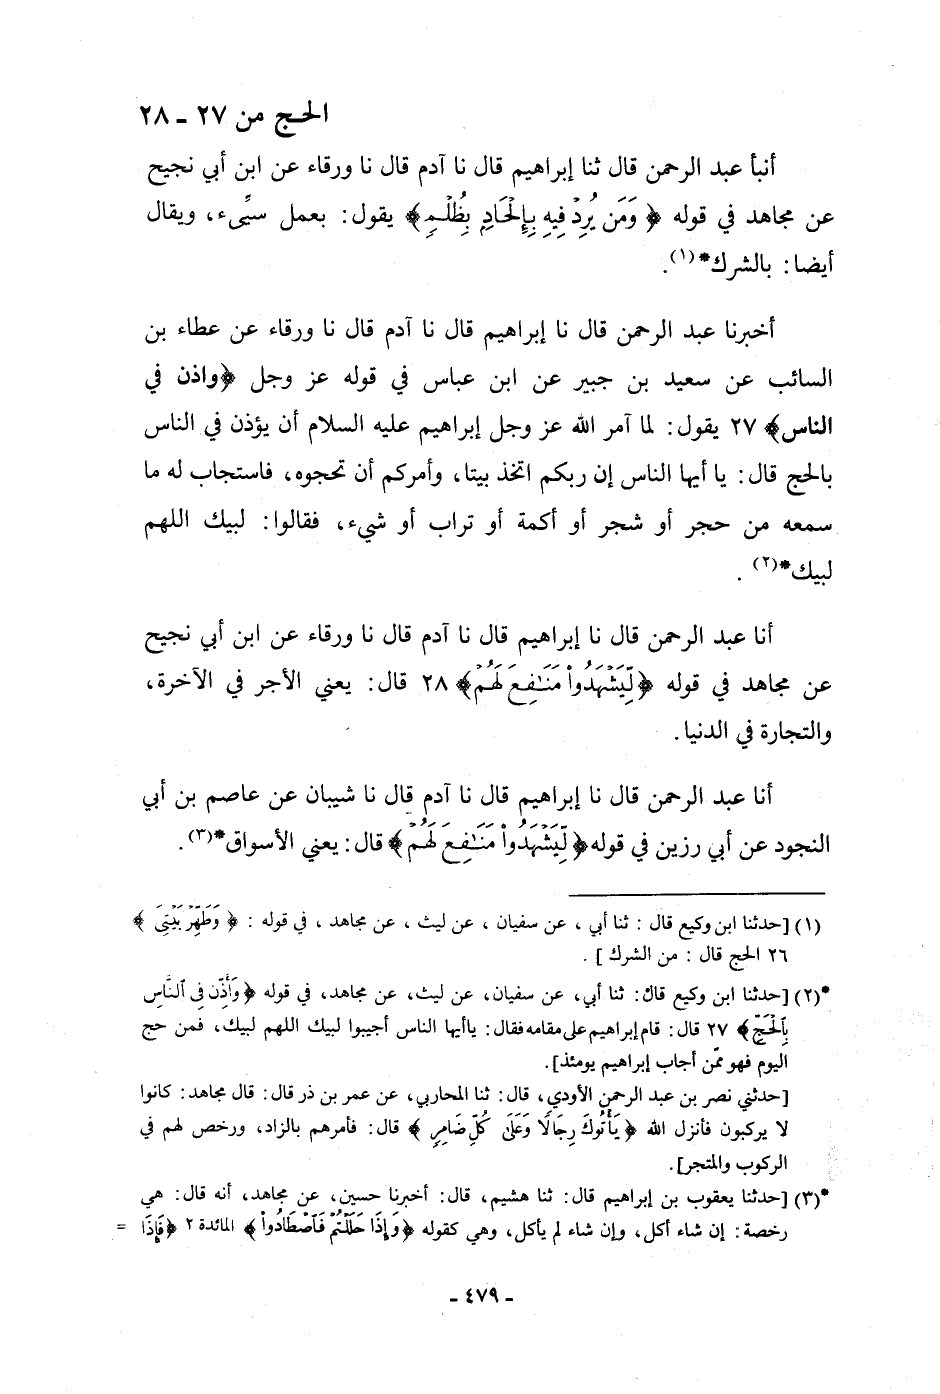 الحج من ٢٧ - ٢٨
أنبأ عبد الرحمن قال ثنا إبراهيم قال نا آدم قال نا ورقاء عن ابن أبي نجيح
عن مجاهد في قوله ﴿ وَمَن يُرِدْ فِيهِ بِإِلْحَادٍ بِظُلْمٍ ﴾ يقول: بعمل سيِّىء، ويقال
أيضا: بالشرك*(١).
أخبرنا عبد الرحمن قال نا إبراهيم قال نا آدم قال نا ورقاء عن عطاء بن
السائب عن سعيد بن جبير عن ابن عباس في قوله عز وجل ﴿واذن في
الناس﴾ ٢٧ يقول: لما آمر الله عز وجل إبراهيم عليه السلام أن يؤذن في الناس
بالحج قال: يا أيها الناس إن ربكم اتخذ بيتا، وأمركم أن تحجوه، فاستجاب له ما
سمعه من حجر أو شجر أو أكمة أو تراب أو شيء، فقالوا: لبيك اللهم
لبيك*(٢) .
أنا عبد الرحمن قال نا إبراهيم قال نا آدم قال نا ورقاء عن ابن أبي نجيح
عن مجاهد في قوله ﴿ لِّيَشْهَدُوا۟ مَنَـٰفِعَ لَهُمْ ﴾ ٢٨ قال: يعني الأجر في الآخرة،
والتجارة في الدنيا.
أنا عبد الرحمن قال نا إبراهيم قال نا آدم قال نا شيبان عن عاصم بن أبي
النجود عن أبي رزين في قوله ﴿ لِّيَشْهَدُوا۟ مَنَـٰفِعَ لَهُمْ ﴾ قال: يعني الأسواق*(٣).
(١) [حدثنا ابن وكيع قال : ثنا أبي ، عن سفيان ، عن ليث ، عن مجاهد ، في قوله : ﴿ وَطَهِّرْ بَيْتِىَ ﴾
٢٦ الحج قال : من الشرك ] .
*(٢) [حدثنا ابن وكيع قال: ثنا أبي، عن سفيان، عن ليث، عن مجاهد، في قوله ﴿ وَأَذِّن فِى ٱلنَّاسِ
بِٱلْحَجِّ ﴾ ٢٧ قال: قام إبراهيم على مقامه فقال: ياأيها الناس أجيبوا لبيك اللهم لبيك، فمن حج
اليوم فهو ممّن أجاب إبراهيم يومئذ].
[حدثني نصر بن عبد الرحمن الأودي، قال: ثنا المحاربي، عن عمر بن ذر قال: قال مجاهد: كانوا
لا يركبون فأنزل الله ﴿ يَأْتُوكَ رِجَالًا وَعَلَىٰ كُلِّ ضَامِرٍ ﴾ قال: فأمرهم بالزاد، ورخص لهم في
الركوب والمتجر].
*(٣) [حدثنا يعقوب بن إبراهيم قال: ثنا هشيم، قال: أخبرنا حسين، عن مجاهد، أنه قال: هي
رخصة: إن شاء أكل، وإن شاء لم يأكل، وهي كقوله ﴿ وَإِذَا حَلَلْتُمْ فَٱصْطَادُوا۟ ﴾ المائدة ٢ ﴿ فَإِذَا =
- ٤٧٩ -